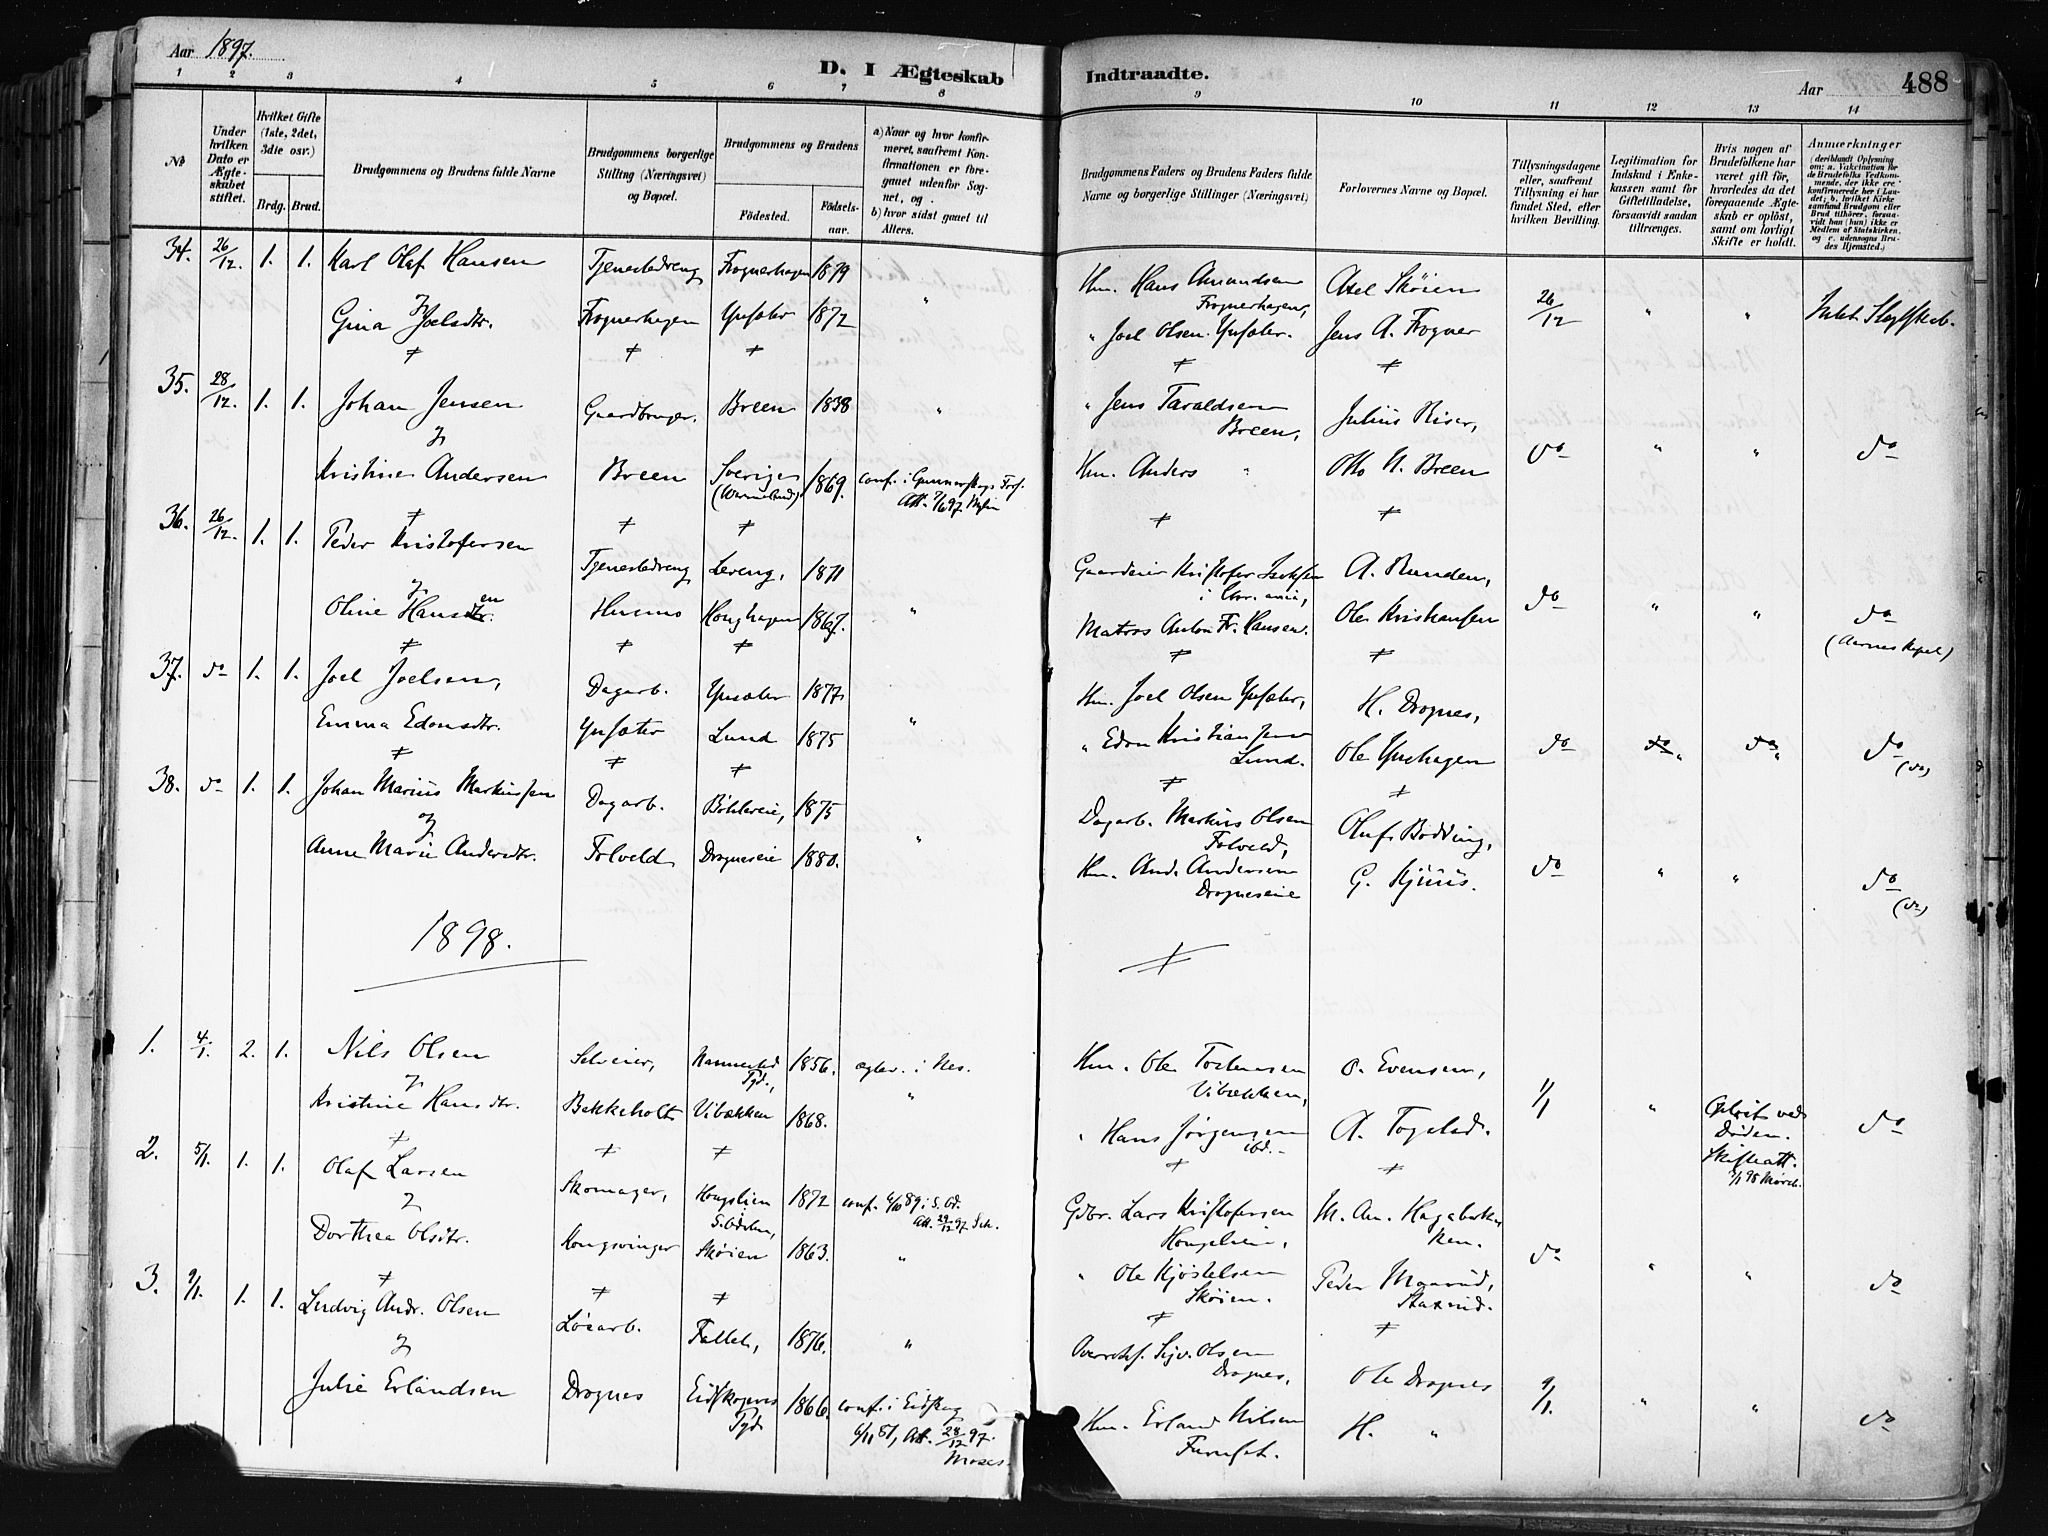 Aar 1897.
D. I Ægteskab Indtraadte.
Aar 488
1 2 3 4 5 6 7 8 9 10 11 12 13 14
No
Under hvilken Dato er Ægteskabet stiftet.
Hvilket Gifte (1ste, 2det, 3die osv.)
Brdg. Brud.
Brudgommens og Brudens fulde Navne
Brudgommens borgerlige Stilling (Næringsvei) og Bopæl.
Brudgommens og Brudens
Fødested. Fødsels-aar.
a) Naar og hvor konfirmeret, saafremt Konfirmationen er foregaaet udenfor Sognet, og
b) hvor sidst gaaet til Alters.
Brudgommens Faders og Brudens Faders fulde Navne og borgerlige Stillinger (Næringsvei)
Forlovernes Navne og Bopæl.
Tillysningsdagene eller, saafremt Tillysning ei har fundet Sted, efter hvilken Bevilling.
Legitimation for Indskud i Enkekassen samt for Giftetilladelse, forsaavidt saadan tiltrænges.
Hvis nogen af Brudefolkene har været gift før, hvorledes da det foregaaende Ægteskab er opløst, samt om lovligt Skifte er holdt.
Anmærkninger
(deriblandt Oplysning om: a. Vakcination for de Brudefolks Vedkommende, der ikke ere konfirmerede her i Landet; b. hvilket Kirkesamfund Brudgom eller Brud tilhører, forsaavidt han (hun) ikke er Medlem af Statskirken, og c. udensogns Brudes Hjemsted.)
34. 26/12. 1. 1. Karl Olaf Hansen Tjenestedreng Frognerhagen 1879 Hm. Hans Amundsen Frognerhagen, Axel Skøien 26/12 " "
Gina Joelsdtr. Frognerhagen 1872 " " Joel Olsen Jens A. Frogner Intet Slegtskab.
35. 28/12. 1. 1. Johan Jensen Gaardbruger. Breen 1838 " " Jens Taraldsen Breen, Julius Riser,
Kristine Andersen Breen Sverige 1869. conf. i Gunnarskogs Hm. Anders " Otto N. Breen do " " do
36. 26/12. 1. 1. Peder Kristofersen Tjenestedreng Lereng, 1871 Gaardeier Kristofer A. Runden,
Oline Hansen Husmo 1867. " Matros Anton Fr. Hansen. Ole Kristiansen do " " do
(Aarnes Kapel)
37. do 1. 1. Joel Joelsen, Dagarb. 1877 Hm. Joel Olsen H. Drognes,
Emma Edonsdtr. Lund 1875 " " Edon Kristiansen Lund. Ole do " " do (do)
38. do 1. 1. Johan Marius Markussen Dagarb. 1875 Dagarb. Markus Olsen Folveld, Oluf Bodding,
Anne Marie Andersdtr. Folveld Drogneseie 1880. " Hm. And. Andersen Drogneseie G. Kjuus. do " " do (do)
1898.
1. 4/1. 2. 1. Nils Olsen Selveier, Nannestad Pgd., 1856. i Nes. Hm. Ole Vibækken, O. Evensen,
Kristine Hansdtr. Bekkeholt Vibækken 1868. " " Hans Jørgensen ibd. A. Fogstad. 1/1 " Opløst ved Døden. Skifteatt. do
2. 5/1. 1. 1. Olaf Larsen Skomager, Hongslien S. Odalen, 1872 conf. 6/10 89 i S. Od. Att. 29/12 97. Gdbr. Lars Kristofersen
Dorthea Olsdtr. Kongsvinger Skøien 1863. " " Ole Kjøstelsen Skøien. Peder Maarud, do " " do
3. 9/1. 1. 1. Ludvig Andr. Olsen Løsarb. Fallet, 1876. " Olsen Drognes, Ole Drognes
Julie Erlandsen Drognes Eidskogens Pgd. 1866. conf. i Eidskog 6/11 81, Att. 28/12 97. Moses. Hm. Erland Nilsen Furuset. H. " 9/1. " " do